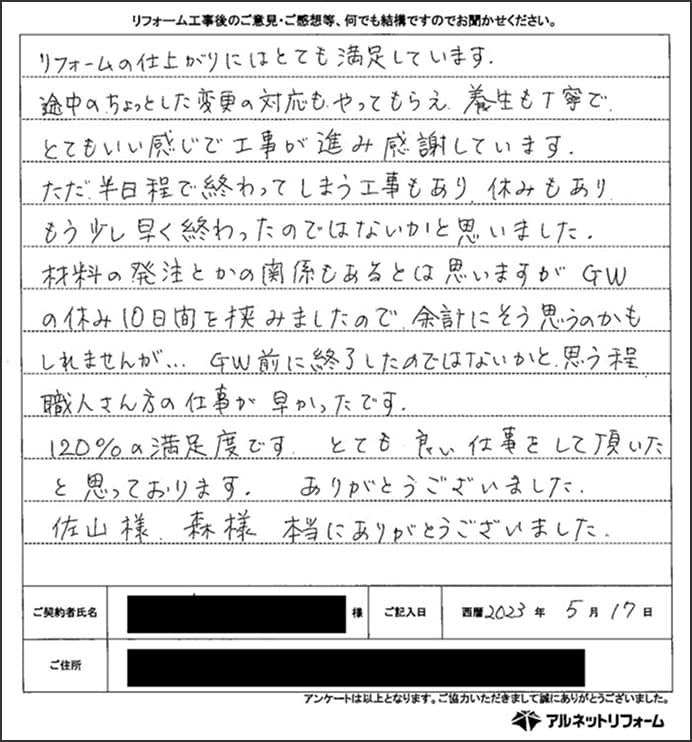 リフォーム工事後のご意見・ご感想等、何でも結構ですのでお聞かせください。
リフォームの仕上がりにはとても満足しています.
途中のちょっとした変更の対応も、やってもらえ、養生も丁寧で、
とてもいい感じで工事が進み感謝しています.
ただ、半日程で終わってしまう工事もあり、休みもあり
もう少し早く終わったのではないかと思いました.
材料の発注とかの関係もあるとは思いますが GW
の休み10日間を挟みましたので、余計にそう思うのかも
しれませんが... GW前に終了したのではないかと、思う程
職人さん方の仕事が 早かったです.
120%の満足度です. とても 良い 仕事をして頂いた
と思っております. ありがとうございました.
佐山様、森様 本当にありがとうございました.
ご契約者氏名 様 ご記入日 西暦2023年 5月17日
ご住所
アンケートは以上となります。ご協力いただきまして誠にありがとうございました。
アルネットリフォーム